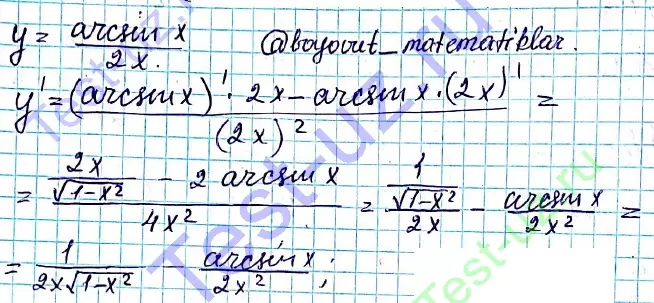 y = arcsin x / 2x. @boyovut_matematiklar.
y' = ((arcsin x)' · 2x − arcsin x · (2x)') / (2x)² =
= (2x/√(1−x²) − 2 arcsin x) / 4x² = (1/√(1−x²)) / 2x − arcsin x / 2x² =
= 1 / 2x√(1−x²) − arcsin x / 2x² ;
Test-uz.ru
Test-uz.ru
Test-uz.ru